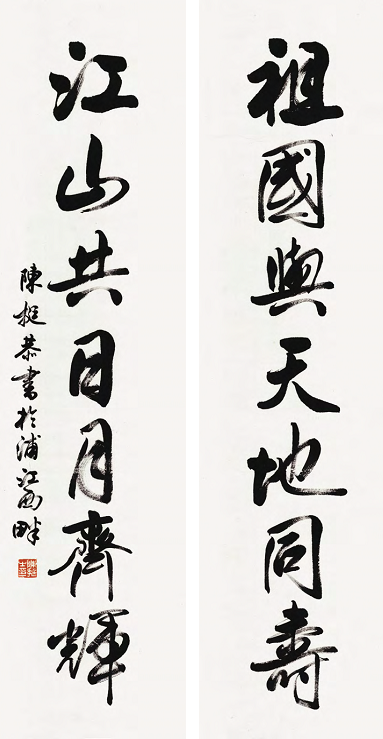 祖國與天地同壽
江山共日月齊輝
陳挺恭書於浦江西畔